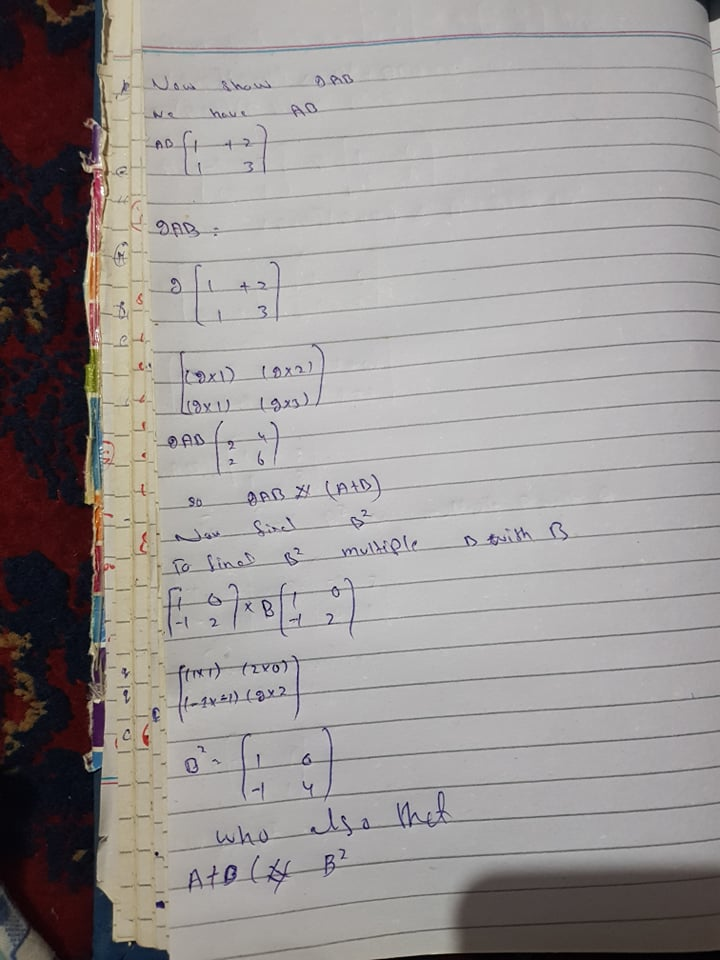 Now show 2AB
We have AB
AB [1 +2
1 3]
2AB =
2 [1 +2
1 3]
[(2x1) (2x2)
(2x1) (2x3)]
2AB [2 4
2 6]
so 2AB (A+B)
Now find B²
To find B² multiple B with B
[1 0
-1 2] x B [1 0
-1 2]
[(1x1) (2x0)
(-1x-1) (2x2]
B² = [1 0
-1 4]
who also that
A+B ( B²